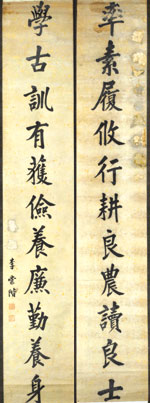 率素履攸行耕良農讀良士
學古訓有獲儉養廉勤養身
李雲階